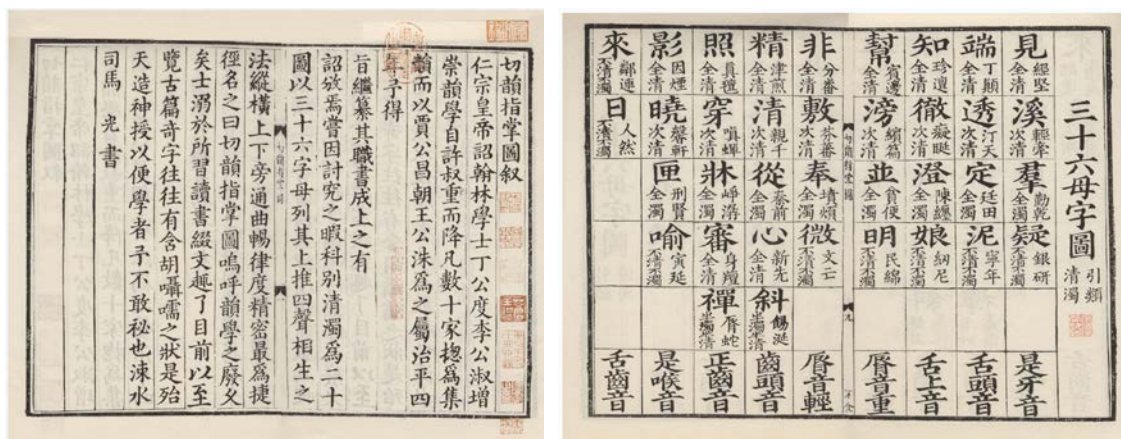 切韻指掌圖叙
仁宗皇帝詔翰林學士丁公度李公淑增
崇韻學自許叔重而降凡數十家揔爲集
韻而以賈公昌朝王公洙爲之屬治平四
年予得
旨繼纂其職書成上之有
詔攽焉嘗因討究之暇科別清濁爲二十
圖以三十六字母列其上推四聲相生之
法縱橫上下旁通曲暢律度精密最爲捷
徑名之曰切韻指掌圖嗚呼韻學之廢久
矣士溺於所習讀書綴文趣了目前以至
覽古篇奇字往往有含胡囁嚅之狀是殆
天造神授以便學者予不敢秘也涑水
司馬 光 書
三十六母字圖 引類清濁
見 經堅 全清 溪 輕牽 次清 羣 勤乾 全濁 疑 銀研 不清不濁 是牙音
端 丁顛 全清 透 汀天 次清 定 廷田 全濁 泥 寧年 不清不濁 舌頭音
知 珍邅 全清 徹 癡脠 次清 澄 陳纏 全濁 娘 紉尼 不清不濁 舌上音
幫 賓邊 全清 滂 繽篇 次清 並 貧便 全濁 明 民綿 不清不濁 脣音重
非 分番 全清 敷 芬番 次清 奉 墳煩 全濁 微 文亡 不清不濁 脣音輕
精 津煎 全清 清 親千 次清 從 秦前 全濁 心 新先 全清 斜 餳涎 半濁半清 齒頭音
照 真氈 全清 穿 嗔蟬 次清 牀 崢潺 全濁 審 身羶 全清 禪 脣蛇 半濁半清 正齒音
影 因煙 全清 曉 馨軒 次清 匣 刑賢 全濁 喻 寅延 不清不濁 是喉音
來 鄰連 不清不濁 日 人然 不清不濁 舌齒音